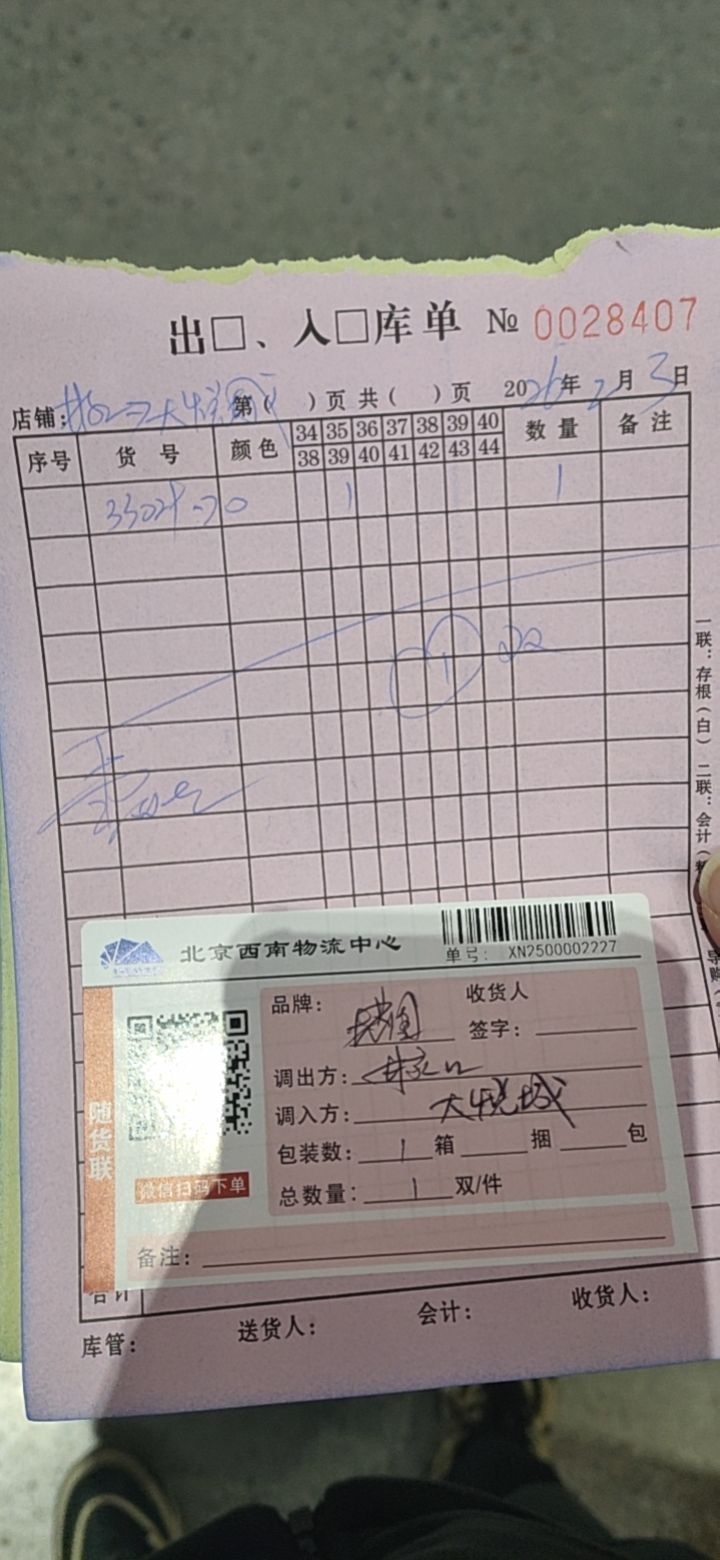 出□、入□库单 № 0028407
店铺: 大悦城 第( )页 共( )页 2026年2月3日
序号 货号 颜色 34 35 36 37 38 39 40 数量 备注
38 39 40 41 42 43 44
1 1
1
一联:存根(白) 二联:会计(
北京西南物流中心
单号: XN2500002227
随货联
微信扫码下单
品牌: 收货人
签字:
调出方:
调入方: 大悦城
包装数: 1 箱 捆 包
总数量: 1 双/件
备注:
合计
库管: 送货人: 会计: 收货人: